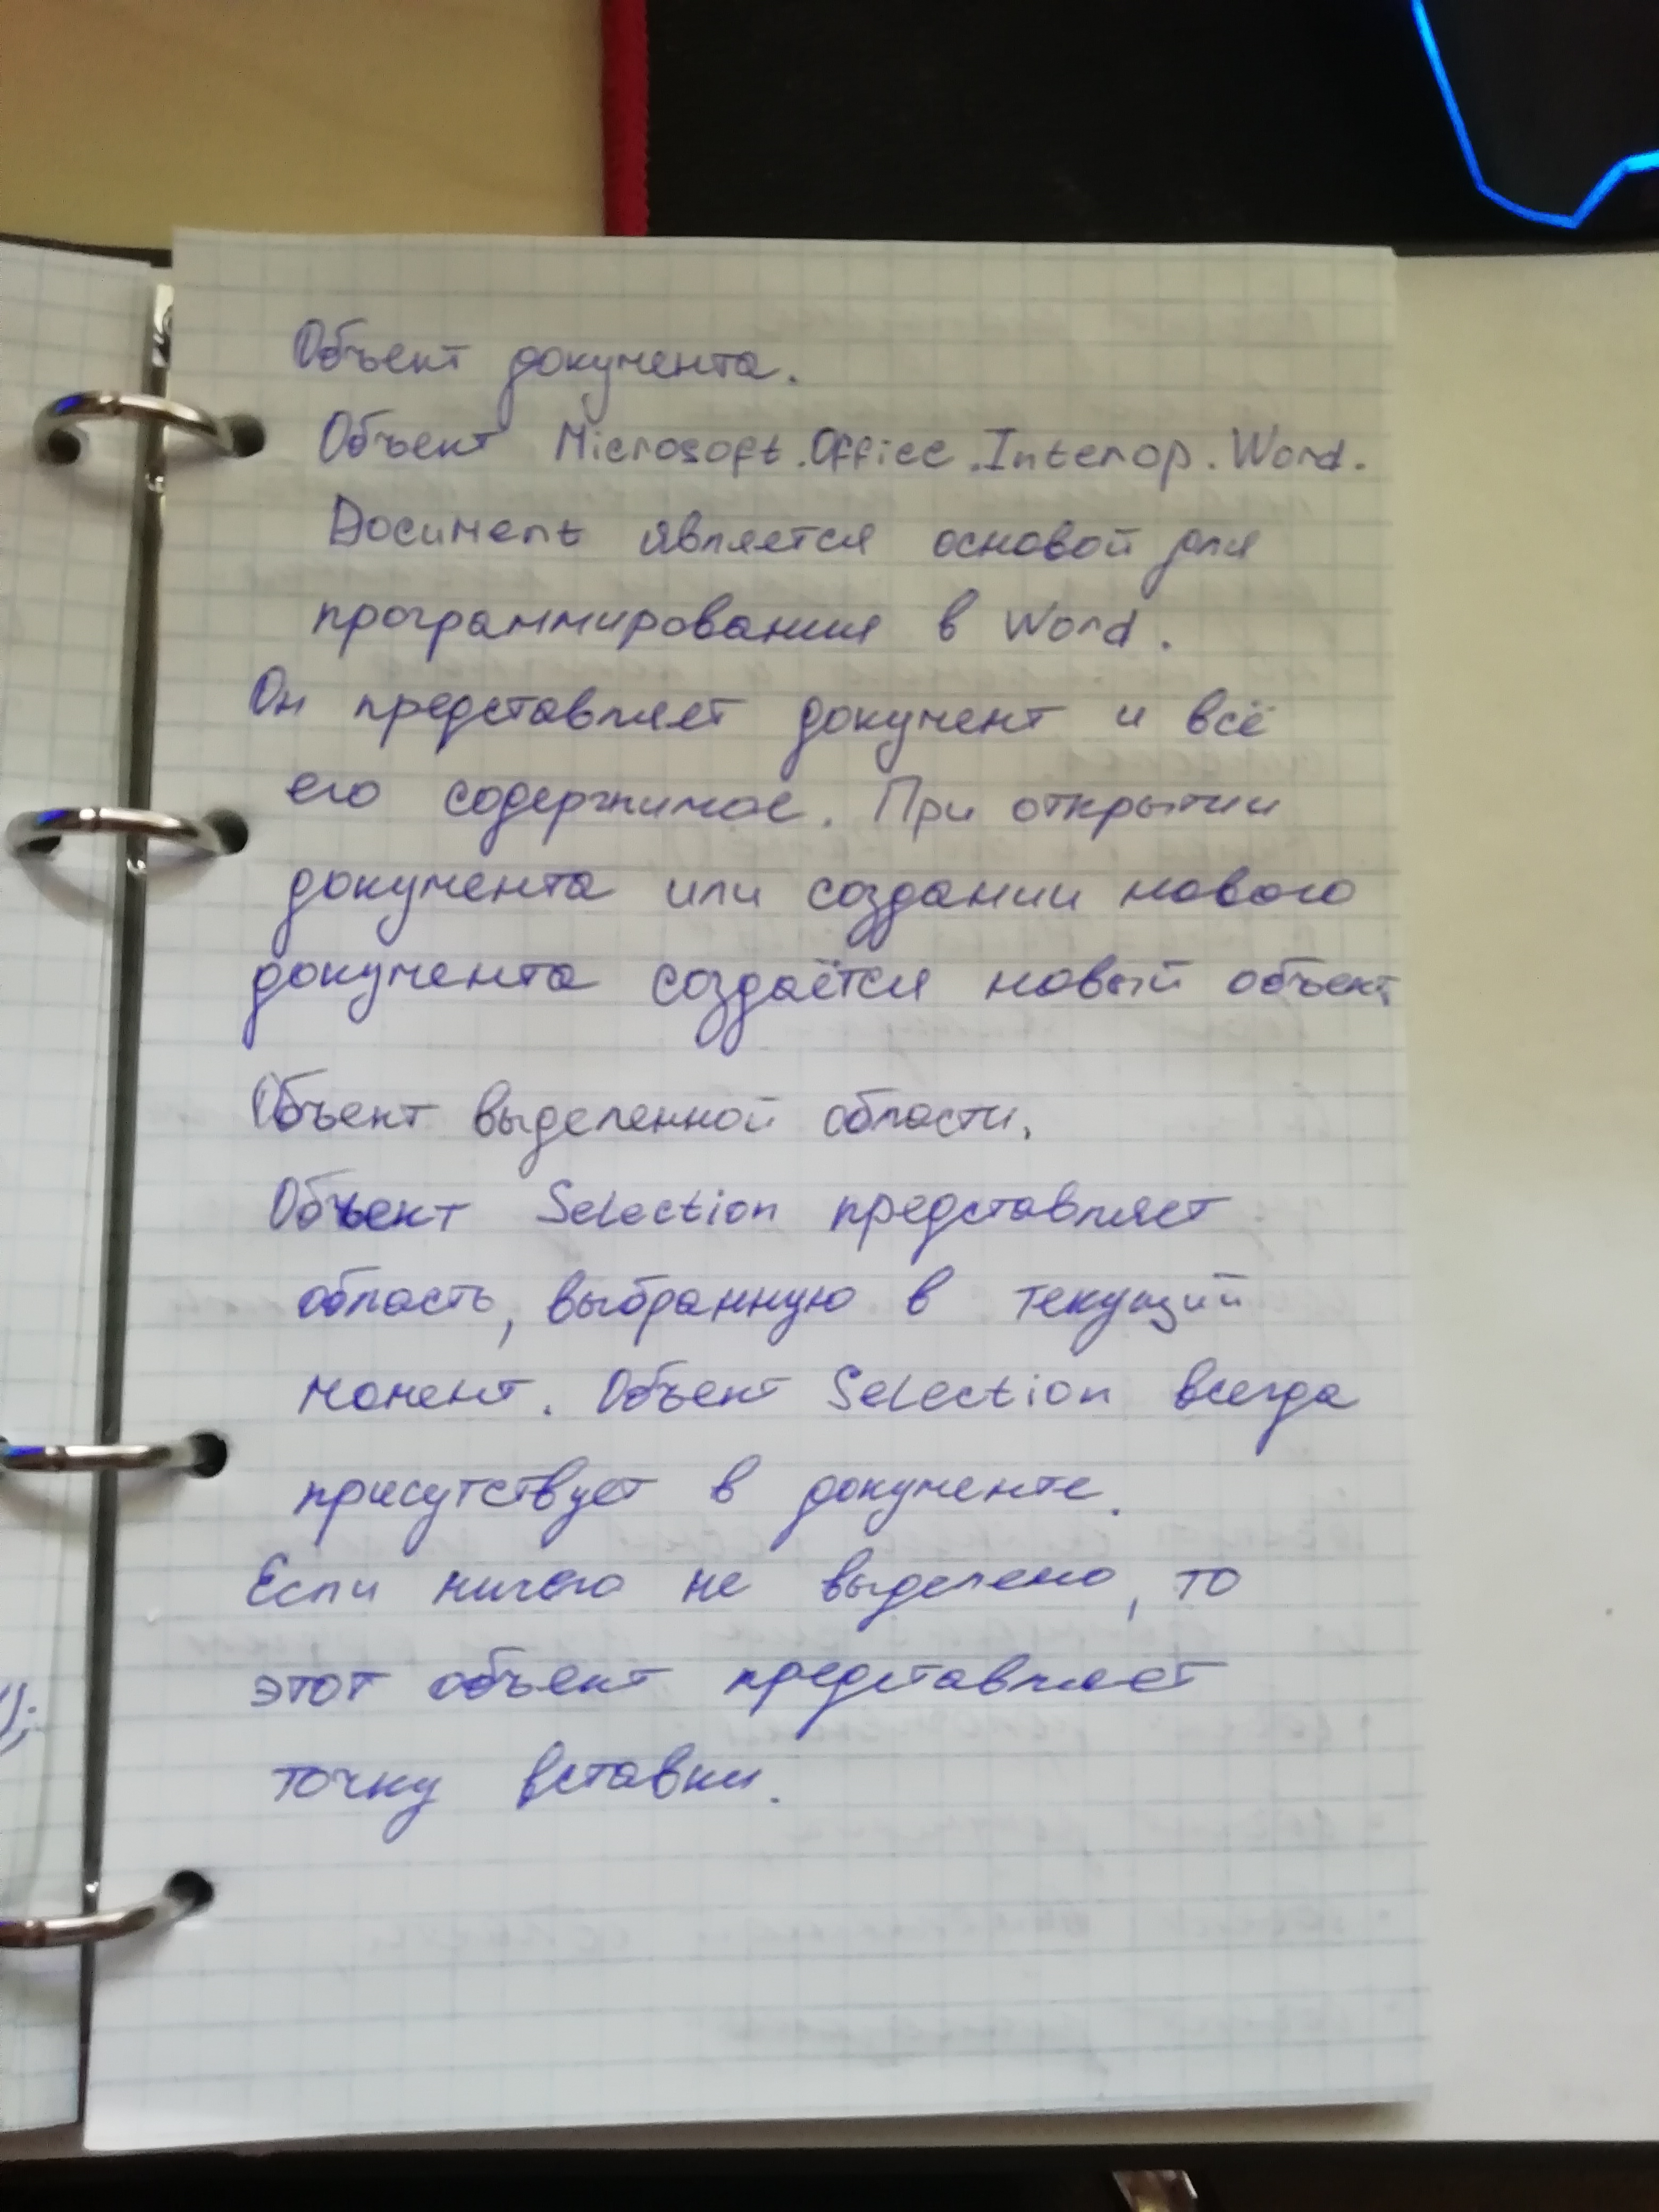 Объект документа.
Объект Microsoft.Office.Interop.Word.
Document является основой для
программирования в Word.
Он представляет документ и всё
его содержимое. При открытии
документа или создании нового
документа создаётся новый объект
Объект выделенной области.
Объект Selection представляет
область, выбранную в текущий
момент. Объект Selection всегда
присутствует в документе.
Если ничего не выделено, то
этот объект представляет
точку вставки.
);